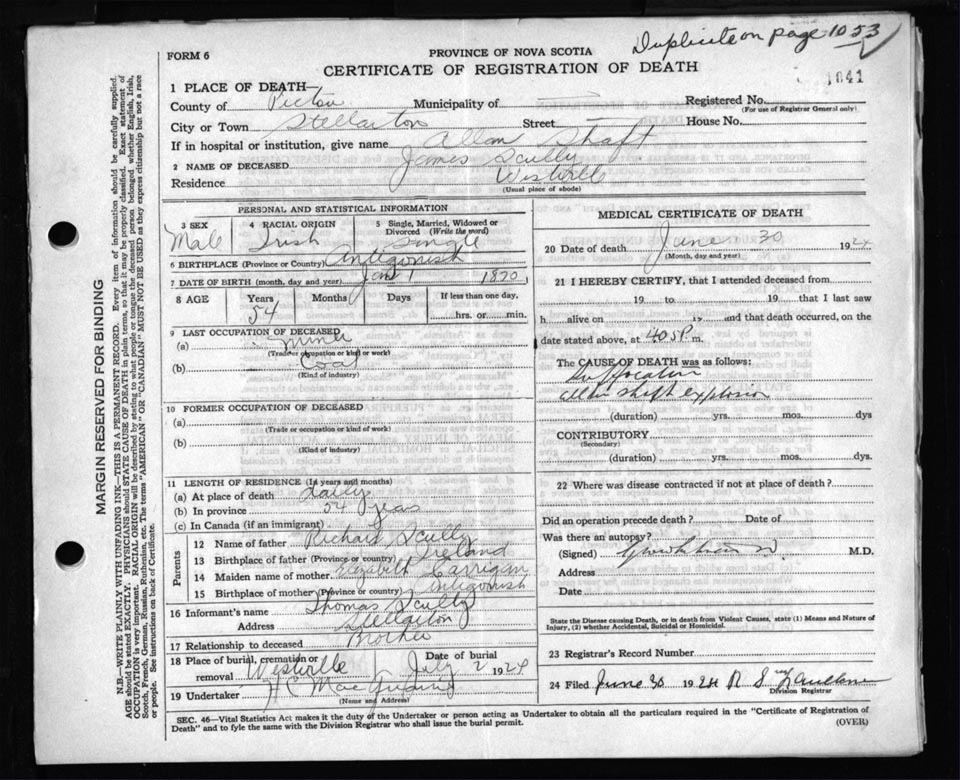 Duplicate on page 1053
FORM 6
PROVINCE OF NOVA SCOTIA
CERTIFICATE OF REGISTRATION OF DEATH
1841
1 PLACE OF DEATH—
County of Pictou Municipality of — Registered No.
(For use of Registrar General only)
City or Town Stellarton Street — House No.
If in hospital or institution, give name Allan Shaft
2 NAME OF DECEASED James Scully
Residence Westville
(Usual place of abode)
PERSONAL AND STATISTICAL PARTICULARS
3 SEX Male 4 RACIAL ORIGIN Irish 5 Single, Married, Widowed or Divorced (Write the word) Single
6 BIRTHPLACE (Province or Country) Antigonish
7 DATE OF BIRTH (month, day and year) Jan 1 1870
8 AGE Years 54 Months Days If less than one day, hrs. or min.
9 LAST OCCUPATION OF DECEASED
(a) Miner
(Trade or occupation or kind or work)
(b) Coal
(Kind of industry)
10 FORMER OCCUPATION OF DECEASED
(a)
(Trade or occupation or kind of work)
(b)
(Kind of industry)
11 LENGTH OF RESIDENCE (in years and months)
(a) At place of death Daily
(b) In province 54 years
(c) In Canada (if an immigrant)
Parents
12 Name of father Richard Scully
13 Birthplace of father (Province or country) Ireland
14 Maiden name of mother Elizabeth Carrigan
15 Birthplace of mother (Province or country) Antigonish
16 Informant's name Thomas Scully
Address Stellarton
17 Relationship to deceased Brother
18 Place of burial, cremation or removal Westville Date of burial July 2 1924
19 Undertaker H C Mac
(Name and address)
MEDICAL CERTIFICATE OF DEATH
20 Date of death June 30 1924
(Month, day and year)
21 I HEREBY CERTIFY, that I attended deceased from
19 to 19 that I last saw
h alive on 19 and that death occurred, on
date stated above, at 405P. m.
The CAUSE OF DEATH was as follows:
Suffocation
Allan Shaft explosion
(duration) yrs. mos. dys
CONTRIBUTORY
(Secondary)
(duration) yrs. mos. dys.
22 Where was disease contracted if not at place of death?
Did an operation precede death? Date of
Was there an autopsy?
(Signed) M.D.
Address
Date
State the Disease causing Death, or in death from Violent Causes, state (1) Means and Nature of
Injury, (2) whether Accidental, Suicidal or Homicidal.
23 Registrar's Record Number
24 Filed June 30 1924 R S
Division Registrar
SEC. 46—Vital Statistics Act makes it the duty of the Undertaker or person acting as Undertaker to obtain all the particulars required in the "Certificate of Registration of
Death" and to fyle the same with the Division Registrar who shall issue the burial permit.
(OVER)
MARGIN RESERVED FOR BINDING
N.B.—WRITE PLAINLY WITH UNFADING INK—THIS IS A PERMANENT RECORD. Every item of information should be carefully supplied.
AGE should be stated EXACTLY. PHYSICIANS should STATE CAUSE OF DEATH in plain terms, so that it may be properly classified. Exact statement of
OCCUPATION is very important. RACIAL ORIGIN will be described by stating to what people or tongue the deceased person belonged whether English, Irish,
Scotch, French, German, Russian, Ruthenian, etc. The terms "AMERICAN" OR "CANADIAN" MUST NOT BE USED as they express citizenship but not a race
or people. See instructions on back of Certificate.